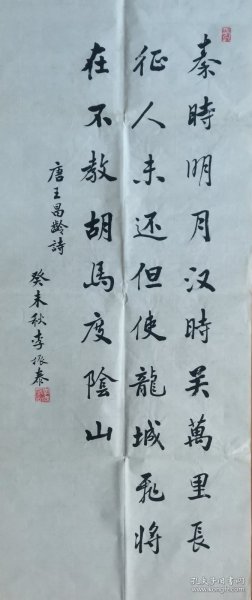 秦時明月汉時关萬里長
征人未还但使龍城飛將
在不教胡馬度陰山
唐王昌龄詩
癸未秋李振泰
孔夫子旧书网